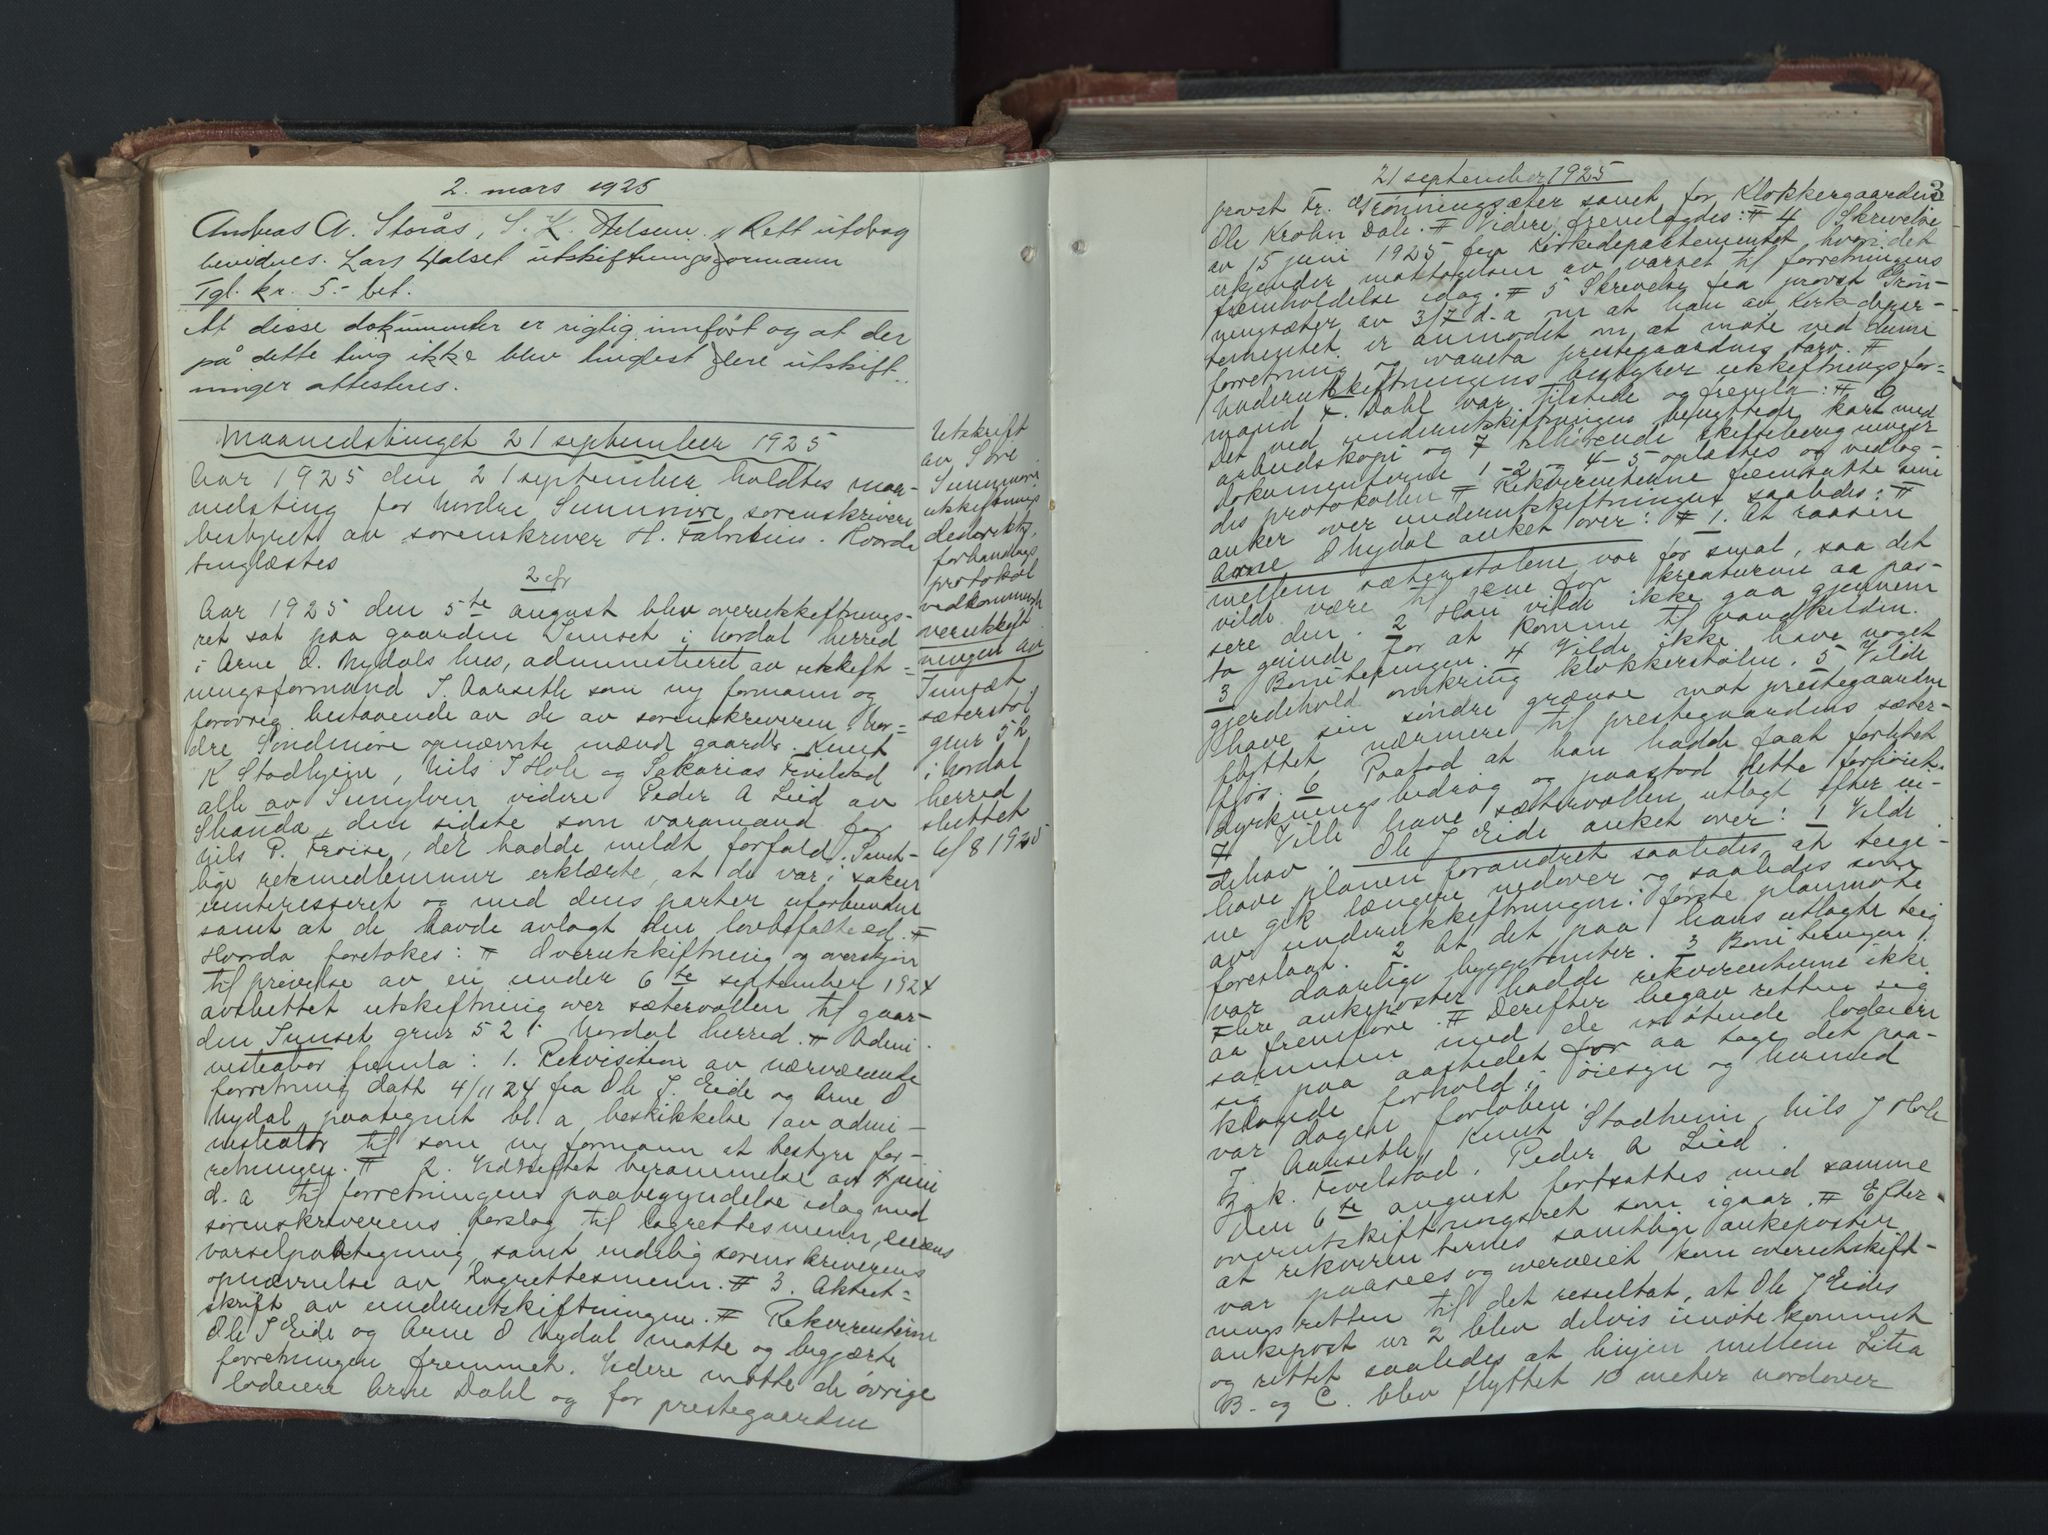 2. mars 1925
Andreas A. Storås, S. K. Rett utdrag
bevidnes. Lars Valset utskiftningsformann
Tgl. kr. 5.- bet.
At disse dokummenter er rigtig innført og at der
på dette ting ikke blev tinglest flere utskift-
ninger attesteres.
Maanedstinget 21 september 1925
Aar 1925 den 21 september holdtes maa-
nedsting for Nordre Sunnmøre sorenskriveri
bestyret av sorenskriver H. Fabritius. Hvorda
tinglæstes
2 fr
Aar 1925 den 5te august blev overutskiftnings-
ret sat paa gaarden Sunset i Nordal herred
i Arne O. Nydals hus, administreret av utskift-
ningsformand J. Aarseth som ny formann og
forøvrig bestaaende av de av sorenskriveren i Nor-
dre Søndmøre opnævnte mænd gaardbr. Knut
K Stadheim, Nils J Hole og Sakarias Fivelstad
alle av Sunnylven videre Peder A Lied av
Stranda, den sidste som varamand for
Nils P. Frøise, der hadde meldt forfald. Samt-
lige retsmedlemmer erklærte, at de var i saken
uinteresseret og med dens parter uforbundne
samt at de havde avlagt den lovbefalte ed. #
Hvorda foretokes: # Overutskiftning og overskjøn
til prøvelse av en under 6te september 1924
avsluttet utskiftning over sætervollen til gaar-
den Sunset gnr 52 i Nordal herred. # Admi-
nistrator fremla: 1. Rekvisition av nærværende
forretning dat 4/11 24 fra Ole J. Eide og Arne O
Nydal paategnet bl a beskikkelse av admi-
nistrator til som ny formann at bestyre for-
retningen. # 2. Utskiftet berammelse av 4 juni
d. a til forretningens paabegyndelse idag med
sorenskriverens forslag til lagrettesmenn, eiens
varselpaategning samt endelig sorenskriverens
opnævnelse av lagrettesmenn. # 3. Aktut-
skrift av underutskiftningen. # Rekvirentene
Ole J Eide og Arne O Nydal møtte og begjærte
forretningen fremmet. Videre møtte de øvrige
lodeiere Arne Dahl og for prestegaarden
Utskrift
av Søre
Sunnmøre
utskiftnings
forhandlings
protokol
vedkommende
overutskift
ningen av
Sunset
sæterstøl
gnr 52
i Nordal
herred
sluttet
6/8 1925
21 september 1925
3
provst Fr. Grønningsæter samt for Klokkergaarden
Ole Krohn Dale. # Videre fremlagdes: # 4 Skrivelse
av 15 juni 1925 fra Kirkedepartementet, hvori det
erkjender mottagelsen av varsel til forretningens
fremholdelse idag. # 5 Skrivelse fra provst Grøn-
ningsæter av 3/7 d.a om at han av Kirkedepar-
tementet er anmodet om at møte ved denne
forretning og vareta prestegaardens tarv. #
Underutskiftningens bestyrer utskiftningsfor-
mand L. Dahl var tilstede og fremla: # 9
Det ved underutskiftningen benyttede kart med
arbeidskopi og 7 tilhørende skifteberegninger
dokumenterne 1-2 og 4-5 oplæstes og vedlag-
des protokollen # Rekvirenterne fremsatte sine
anker over underutskiftningen saaledes: #
Arne O Nydal anket over: # 1. At raasen
mellem sæterstølene var for smal, saa det
vilde være til mene for kreaturene aa pas-
sere den. 2 Han vilde ikke gaa gjennem
to grinde for at komme til vandkilden.
3 Boniteringen. 4 Vilde ikke have noget
gjerdehold omkring klokkerstølen. 5 Vilde
have sin søndre grænse mot prestegaarden
flyttet nærmere til prestegaardens sæter-
fjøs. 6 Paastod at han hadde faat forlitet
dyrkningsbidrag og paastod dette forhøiet.
7 Ville have sætervollen utlagt efter in-
dehav. Ole J Eide anket over: 1 Vilde
have planen forandret saaledes at teige-
ne gik længere nedover og saaledes som
av underutskiftningen i første planmøte
foreslaat. 2 At det paa hans utlagte teig
var daarlige byggetomter. 3 Boniteringen.
Flere ankeposter hadde rekvirenterne ikke
aa fremføre. # Derefter begav retten sig
sammen med de møtende lodeiere
sig paa aastedet for aa tage det paa-
klagede forhold i øiesyn og hermed
var dagen forløben.
J. Aarseth, Knut Stadheim, Nils J Hole
Zak. Fivelstad. Peder A Lied.
Den 6te august fortsattes med samme
overutskiftningsret som igaar. # Efter
at rekvirenternes samtlige ankeposter
var paasees og overveiet kom overutskift-
ningsretten til det resultat, at Ole J Eides
ankepost nr 2 blev delvis imøtekommet
og rettet saaledes at linjen mellem Litra
B. og C. blev flyttet 10 meter nordover